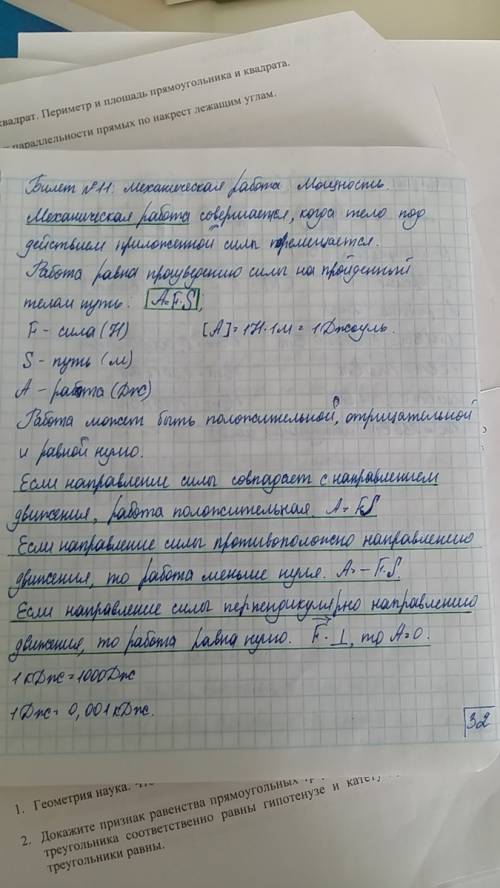 квадрат. Периметр и площадь прямоугольника и квадрата.
параллельности прямых по накрест лежащим углам.
Билет №11: Механическая работа. Мощность.
Механическая работа совершается, когда тело под
действием приложенной силы перемещается.
Работа равна произведению силы на пройденный
телом путь: A=F·S,
F – сила (Н) [A]=1Н·1м = 1Джоуль.
S – путь (м)
A – работа (Дж)
Работа может быть положительной, отрицательной
и равной нулю.
Если направление силы совпадает с направлением
движения, работа положительная. A=FS
Если направление силы противоположно направлению
движения, то работа меньше нуля. A=–F·S.
Если направление силы перпендикулярно направлению
движения, то работа равна нулю. F⃗·⊥, то A=0.
1кДж=1000Дж
1Дж=0,001кДж.
32
1. Геометрия наука.
2. Докажите признак равенства прямоугольных
треугольника соответственно равны гипотенузе и катету
треугольники равны.